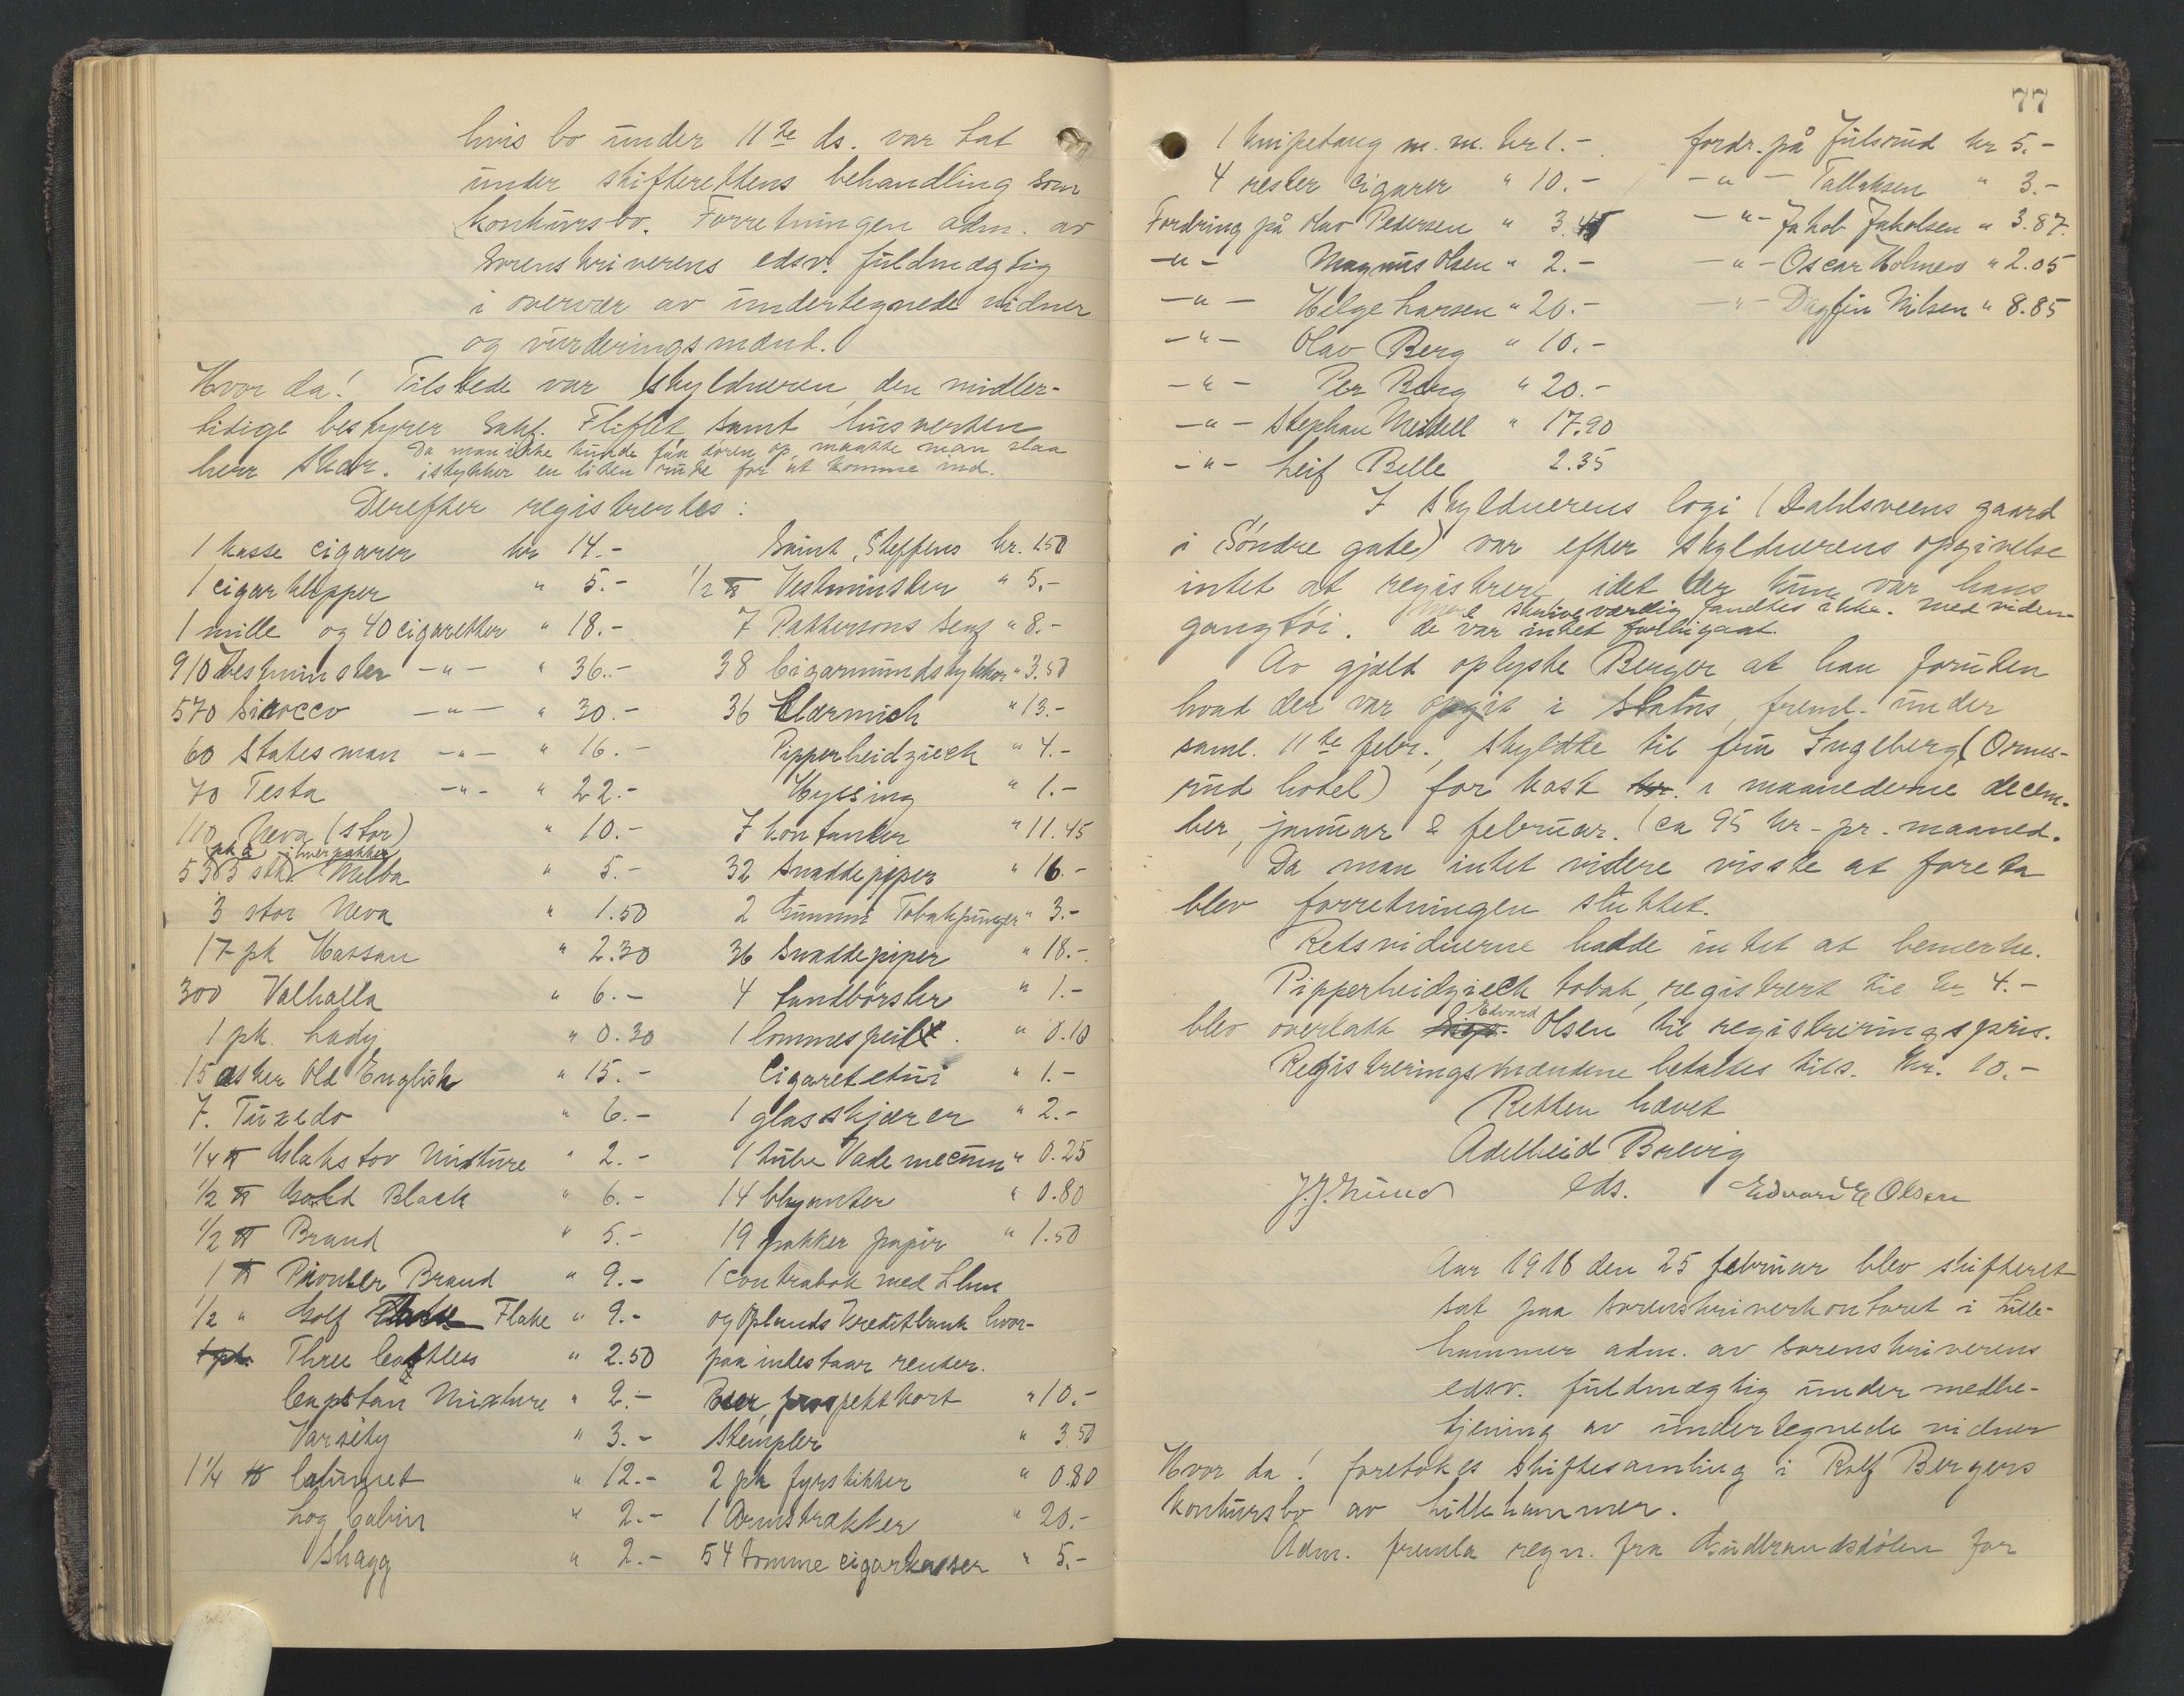 hvis bo under 11te ds. var tat
under skifterettens behandling som
konkursbo. Forretningen adm. av
sorenskriverens edsv. fuldmægtig
i overvær av undertegnede vidner
og vurderingsmænd.
Hvor da! Tilstede var skyldneren, den midler-
tidige bestyrer Sakf. Fliflet samt husverten
herr Skar. Da man ikke kunde faa døren op, maatte man slaa
istykker en liten rute for at komme ind.
Derefter registrertes:
1 kasse cigarer kr 14.-
1 cigarklipper " 5.-
1 mille og 40 cigaretter " 18.-
910 Vestminster -"- " 36.-
570 Sirocco -"- " 30.-
60 Statesman -"- " 16.-
70 Testa -"- " 22.-
110 Neva (stor) " 10.-
pk à i hver pakke
53 5 stk. Melba " 5.-
3 stor Neva " 1.50
17 pk Hassan " 2.30
300 Valhalla " 6.-
1 pk. Lady " 0.30
15 æsker Old English " 15.-
7. Tuxedo " 6.-
1/4 ℔ Mixture " 2.-
1/2 ℔ Gold Black " 6.-
1/2 ℔ Brand " 5.-
1 ℔ Pioneer Brand " 9.-
1/2 " Golf Flake " 9.-
1 pk. Three Castles " 2.50
Capstan Mixture " 2.-
Varsity " 3.-
1 1/4 ℔ Calumet " 12.-
Log Cabin " 2.-
Shagg " 2.-
Saint, Steffens kr. 150
1/2 ℔ Vestminster " 5.-
7 Pattersons " 8.-
38 Cigarmundstykker " 3.50
36 " 13.-
Pipperheidzieck " 4.-
Hyssing " 1.-
I kontanter " 11.45
32 Snaddepiper " 16.-
2 Gummi Tobakpunger " 3.-
36 Snaddepiper " 18.-
4 tandbørster " 1.-
1 lommespeil " 0.10
Cigaretetui " 1.-
1 glasskjærer " 2.-
1 tube Vademecum " 0.25
14 blyanter " 0.80
19 pakker papir " 1.50
1 contrabok med Lhm
og Oplands Kreditbank hvor-
paa indestaar renter.
prospektkort " 10.-
Stempler " 3.50
2 pk fyrstikker " 0.80
1 Ovnstrækker " 20.-
54 tomme cigarkasser " 5.-
77
1 knipetang m. m. kr 1.-
4 rester cigarer " 10.-
Fordring på Olav Pedersen " 3.45
-"- Magnus Olsen " 2.-
-"- Helge Larsen " 20.-
-"- Olav Berg " 10.-
-"- Per Berg " 20.-
-"- Stephan Meidell " 17.90
-"- Leif Belle 2.35
fordr. på Julsrud kr 5.-
-"- Tallaksen " 3.-
-"- Jakob Jakobsen " 3.87.
-"- Oscar Holmen " 2.05
-"- Dagfin Nilsen " 8.85
I skyldnerens logi (Dahlsveens gaard
i Søndre gate) var efter skyldnerens opgivelse
intet at registrere idet der kun var hans
gangtøi. Mere skriveværdig fandtes ikke. Med viden-
de var intet forbigaat.
Av gjæld oplyste Berger at han foruten
hvad der var opgit i Status, freml. under
saml. 11te febr., skyldte til fru Ingeberg (Ormes-
rud hotel) for kost i maanederne decem-
ber, januar & februar. (ca 95 kr. pr. maaned.
Da man intet videre visste at foreta
blev forretningen sluttet.
Retsvidnerne hadde intet at bemerke.
Pipperheidzieck tobak, registrert til kr 4.-
blev overlatt Edvard Olsen til registreringspris.
Registreringsmændene betaltes tils. kr. 10.-
Retten hævet
Adelheid Brevig
J.J. Lund eds. Edvard E Olsen
Aar 1918 den 25 februar blev skifteret
sat paa sorenskriverkontoret i Lille-
hammer adm. av sorenskriverens
edsv. fuldmægtig under medbe-
tjening av undertegnede vidner
Hvor da! foretokes skiftesamling i Rolf Bergers
konkursbo av Lillehammer.
Adm. fremla regn. fra Gudbrandsdølen for